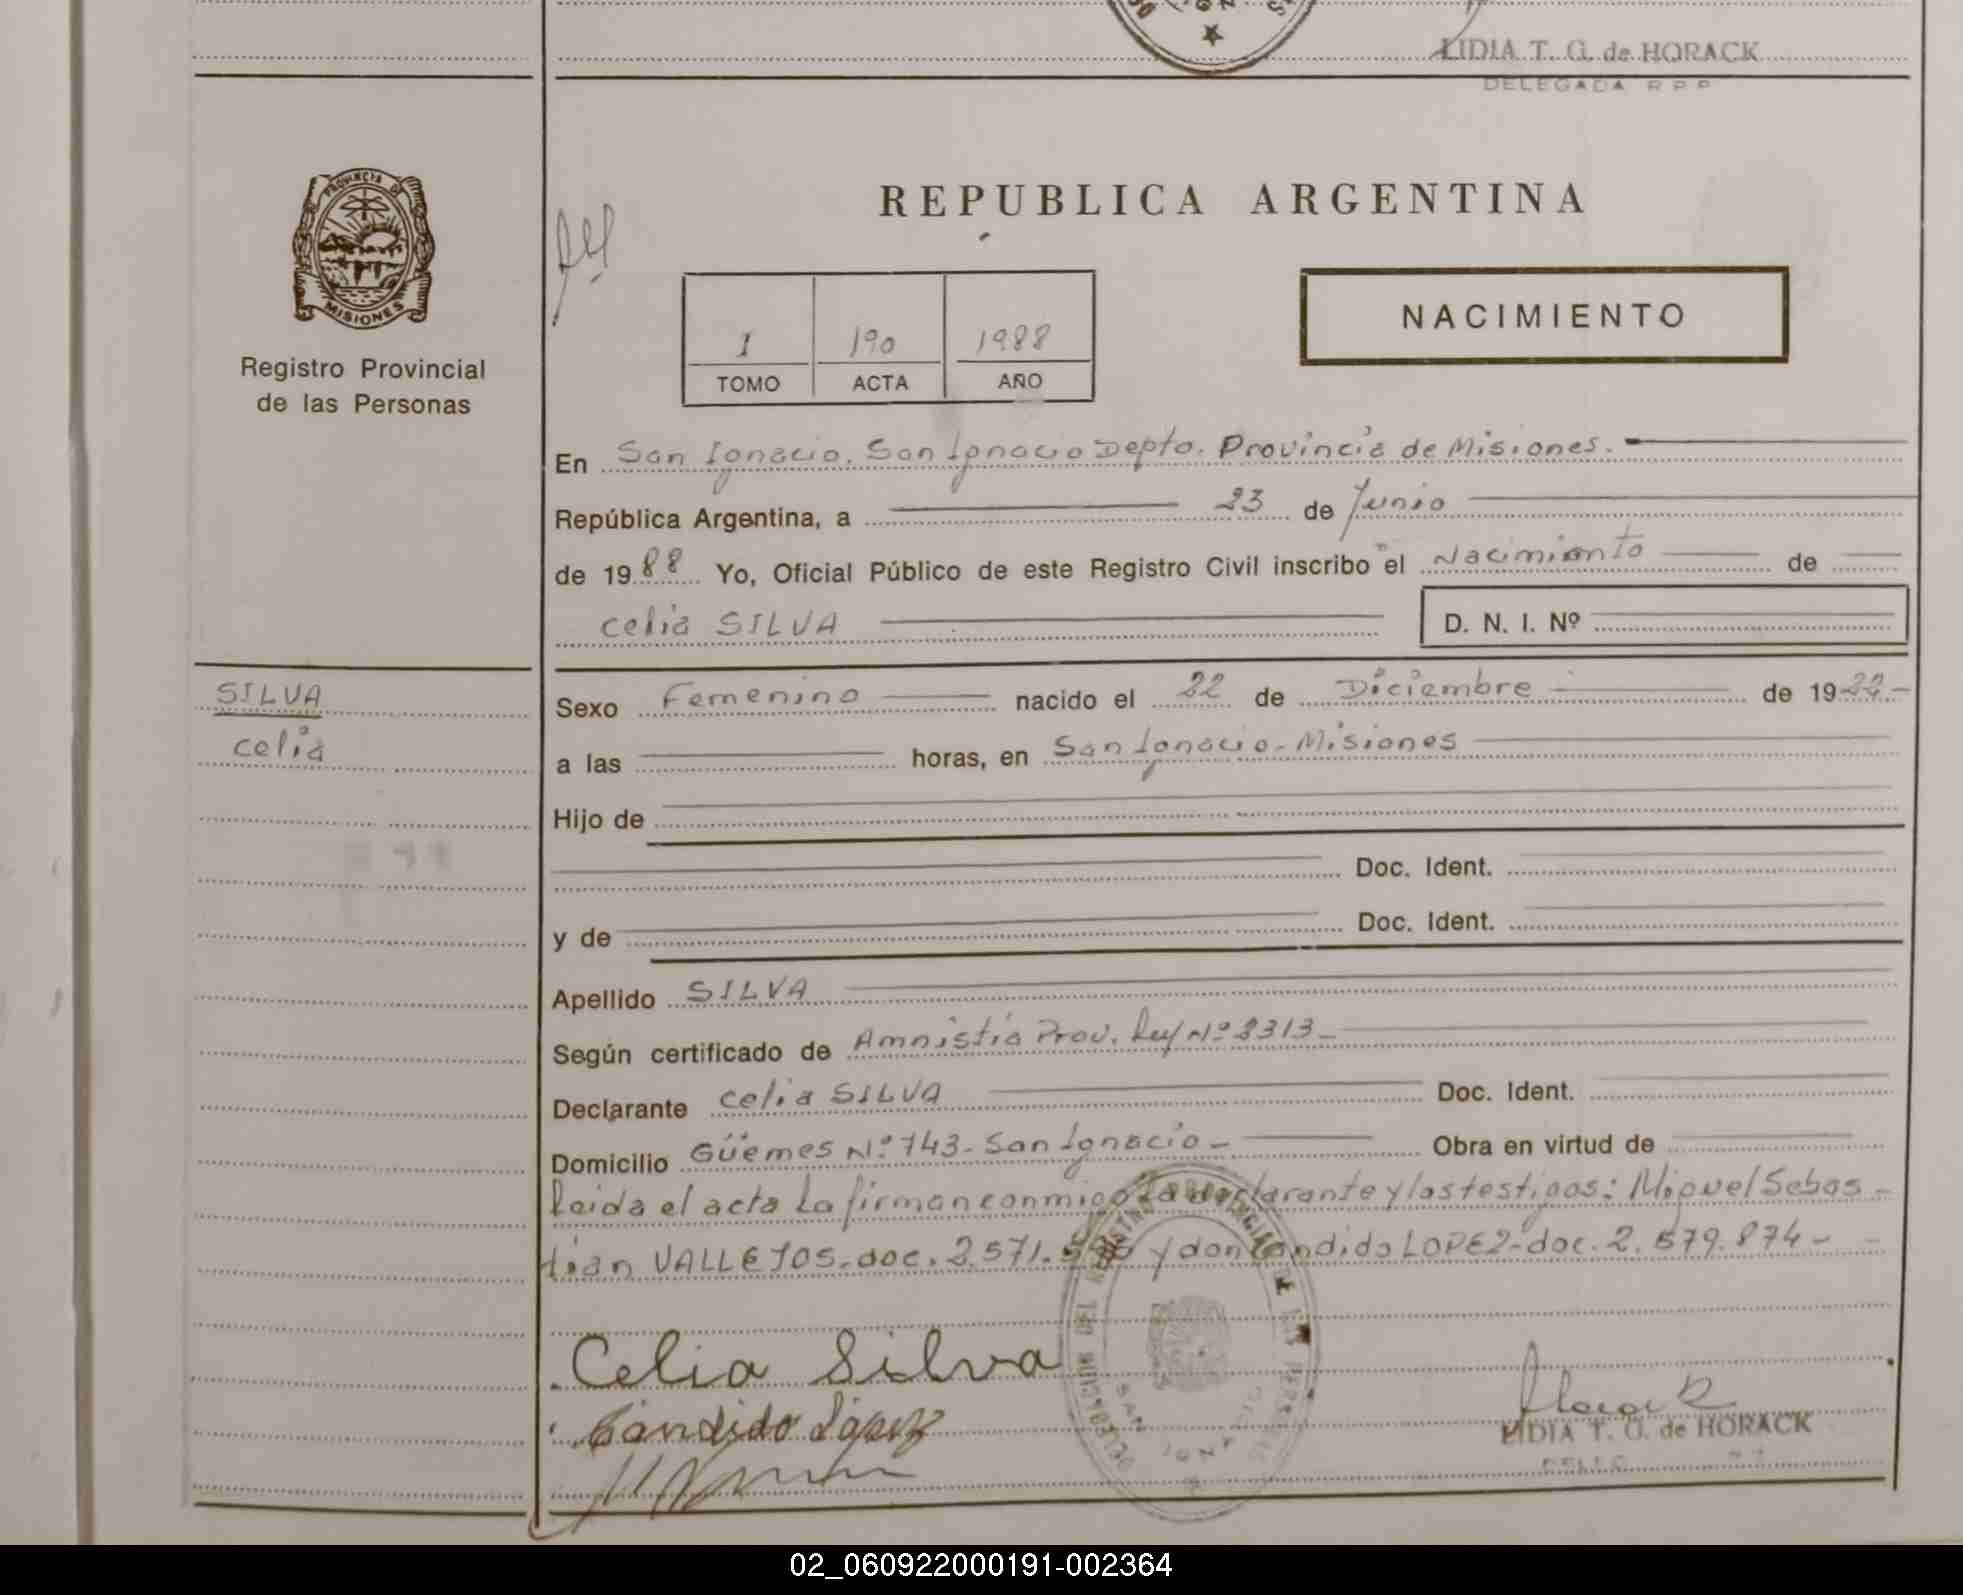 LIDIA T. G. de HORACK
DELEGADA R P P
PROVINCIA DE
MISIONES
Registro Provincial
de las Personas
REPUBLICA ARGENTINA
1 190 1988
TOMO ACTA AÑO
NACIMIENTO
En San Ignacio. San Ignacio Depto. Provincia de Misiones.
República Argentina, a 23 de Junio
de 1988 Yo, Oficial Público de este Registro Civil inscribo el Nacimiento de
Celia SILVA D. N. I. Nº
SILVA
Celia
Sexo Femenino nacido el 22 de Diciembre de 1922-
a las horas, en San Ignacio-Misiones
Hijo de
Doc. Ident.
y de Doc. Ident.
Apellido SILVA
Según certificado de Amnistia Prov. Ley Nº 2313-
Declarante Celia SILVA Doc. Ident.
Domicilio Güemes Nº 743-San Ignacio- Obra en virtud de
Leida el acta La firman conmigo la declarante y los testigos: Miguel Sebas-
tian VALLEJOS-doc. 2.571. y don Candido LOPEZ-doc. 2.579.874-
Celia Silva
Candido López
LIDIA T. G. de HORACK
02_060922000191-002364